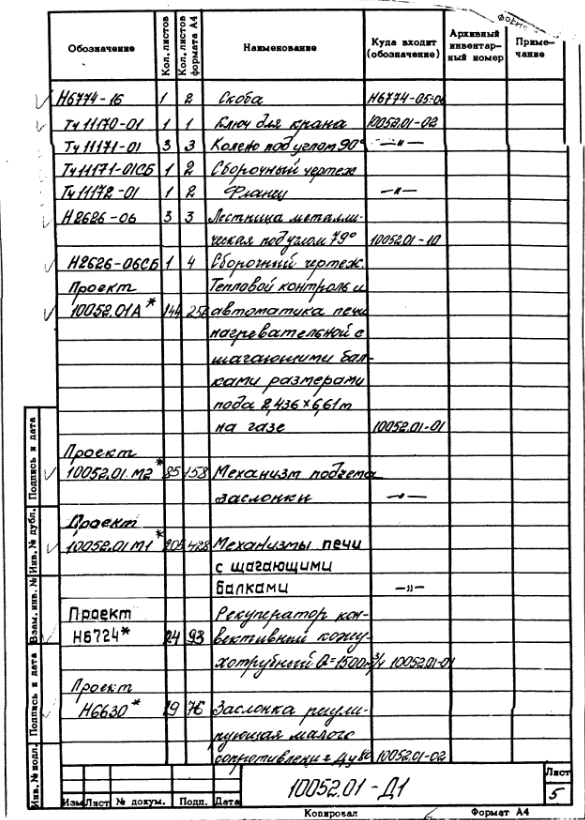 Форм
Обозначение Кол. листов Кол. листов формата А4 Наименование Куда входит (обозначение) Архивный инвентар-ный номер Приме-чание
Н6774-16 1 2 Скоба Н6774-05.00
Ту11170-01 1 1 Ключ для крана 10052.01-02
Ту11171-01 3 3 Колено под углом 90° —"—
Ту11171-01СБ 1 2 Сборочный чертеж
Ту11172-01 1 2 Фланец —"—
Н2626-06 3 3 Лестница металли-
ческая под углом 79° 10052.01-10
Н2626-06СБ 1 4 Сборочный чертеж.
Проект Тепловой контроль и
10052.01А* 144 252 автоматика печи
нагревательной с
шагающими бал-
ками размерами
пода 2,436×6,61м
на газе 10052.01-01
Проект
10052.01 М2* 85 158 Механизм подъема
заслонки —"—
Проект
10052.01 М1* 205 428 Механизмы печи
с шагающими
балками —"—
Проект Рекуператор кон-
Н6724* 24 93 вективный кожу-
хотрубный Q=1500м³/ч 10052.01-01
Проект
Н6630* 29 76 Заслонка регули-
рующая малого
сопротивления Ду80 10052.01-02
Подпись и дата
Инв. № дубл.
Взам. инв. №
Подпись и дата
Инв. № подл.
Изм Лист № докум. Подп. Дата
10052.01-Д1
Лист
5
Копировал Формат А4